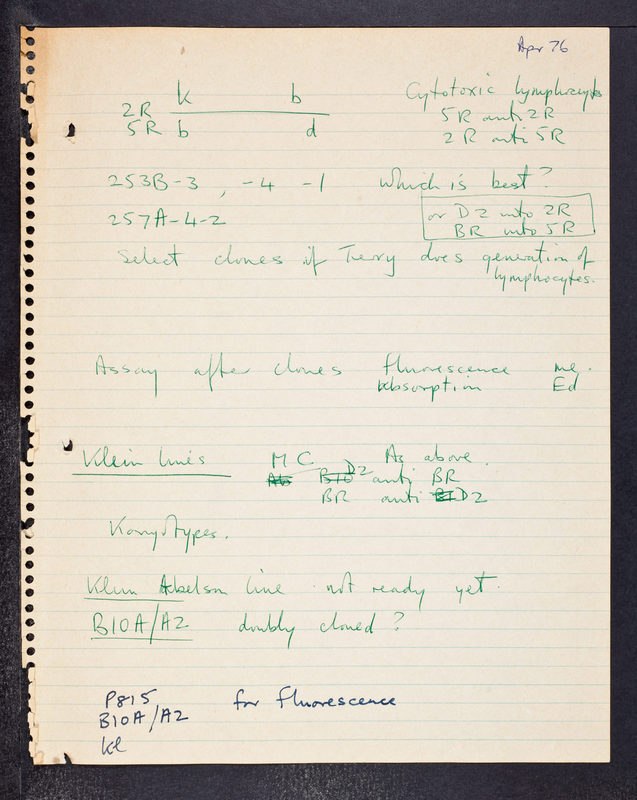 Apr 76
k b Cytotoxic lymphocytes
2R 5R anti 2R
5R b d 2R anti 5R
253B-3 , -4 -1 which is best?
257A-4-2 or D2 into 2R
BR into 5R
Select clones if Terry does generation of
lymphocytes.
Assay after clones fluorescence me.
Absorption Ed
Klein lines MC As above.
D2 anti BR
BR anti D2
Karyotypes.
Klein Abelson line not ready yet.
B10A/A2 doubly cloned?
P815 for fluorescence
B10A/A2
Kl